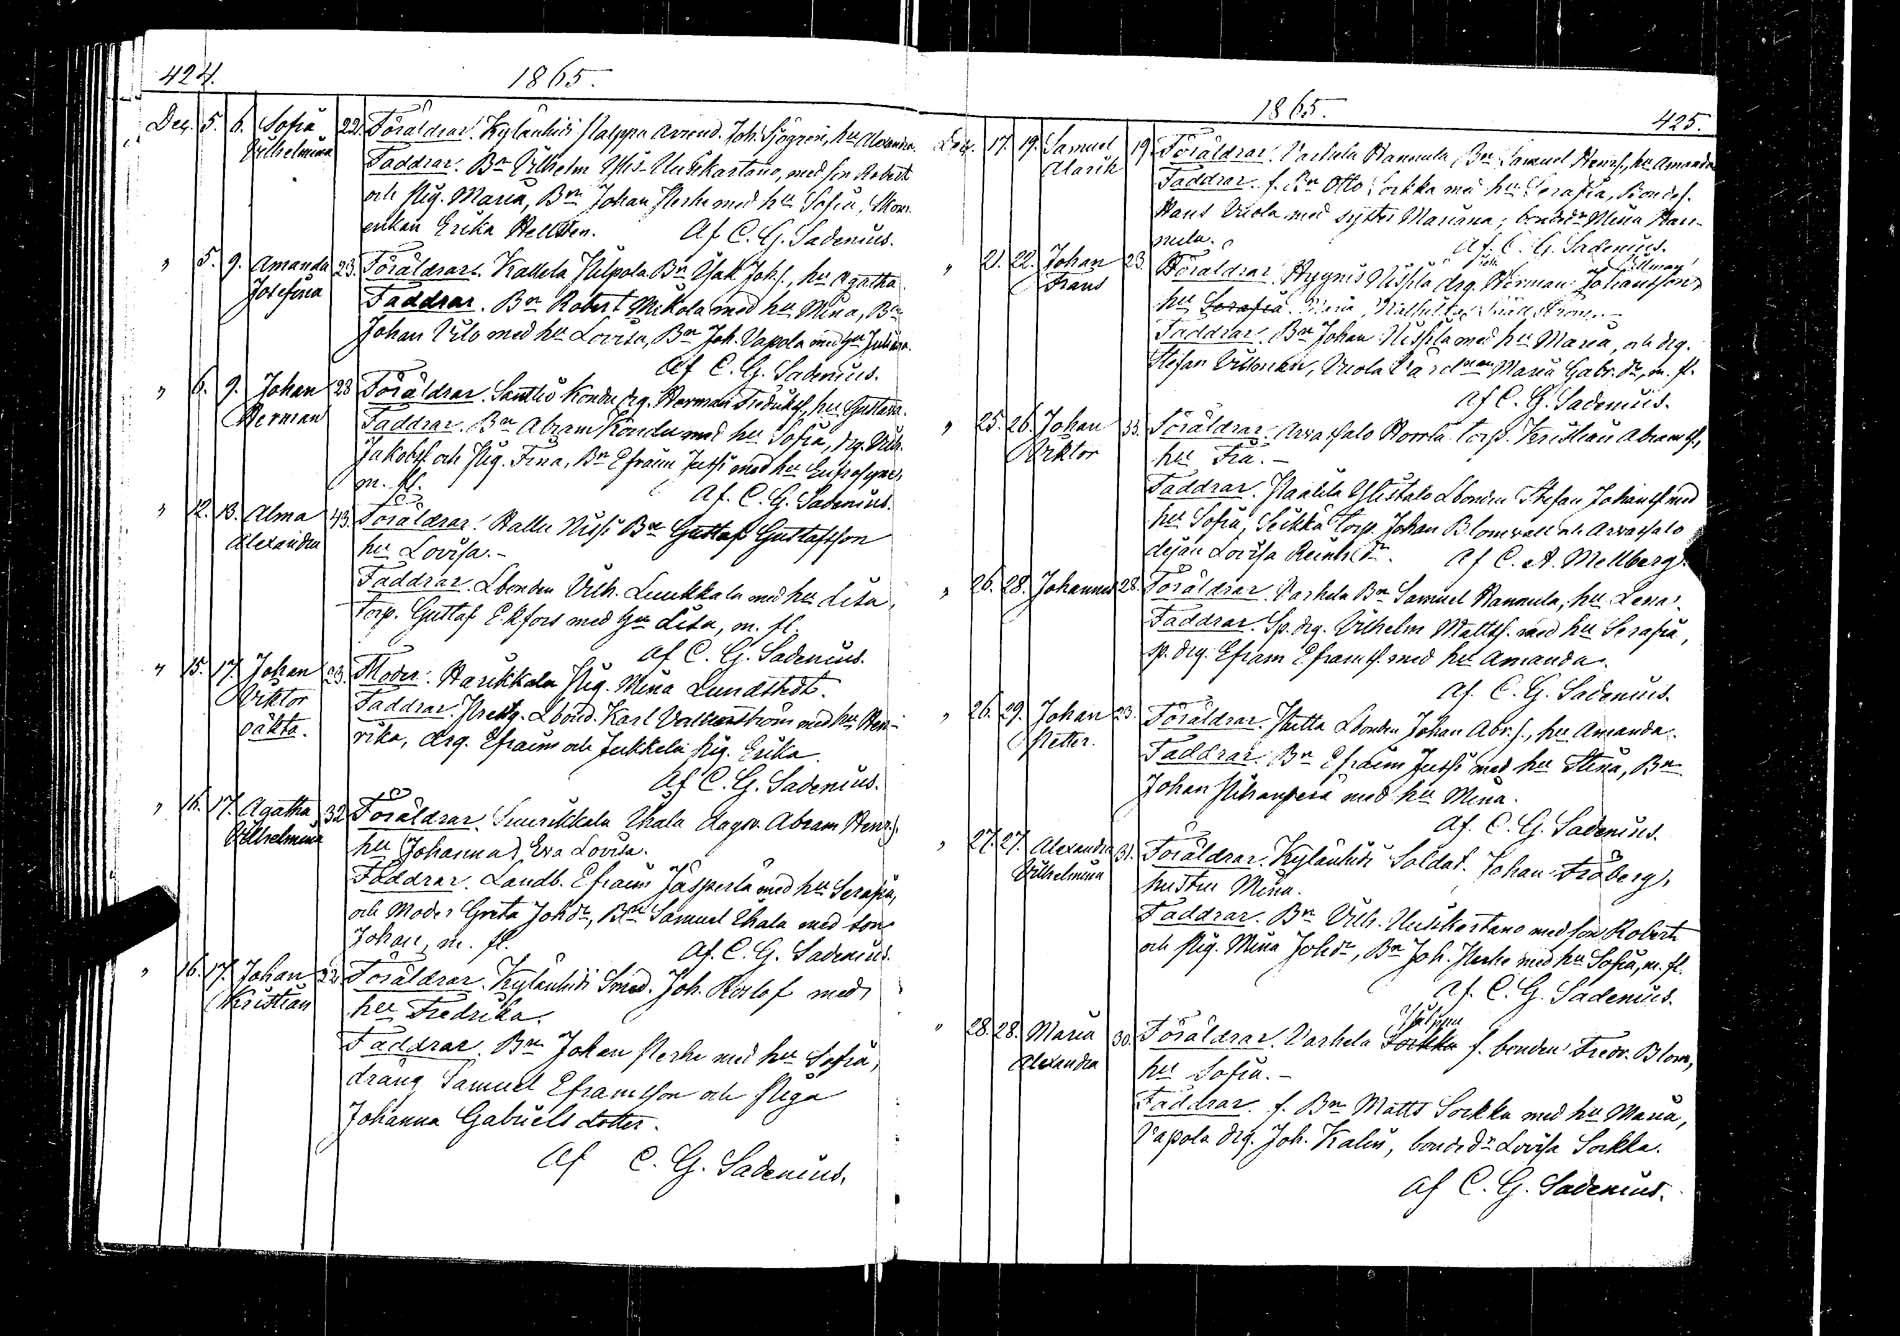 424.
1865.
Dec. 5. 6. Sofia Vilhelmina 22. Föräldrar. Kyläuhiis Nalppa arrend. Joh. Sjögren, hu Alexandra.
Faddrar. Bn Vilhelm Uusikartano, med son Robert
och pig. Maria, Bn Johan Perhe med hu Sofia,
enkan Erika Hellsten. Af C. G. Sadenius.
" 5. 9. Amanda Josefina 23. Föräldrar. Kallela Hilpola Bn Isak Joh.s., hu Agatha.
Faddrar. Bn Robert Mikola med hu Mina, Bn
Johan Vilo med hu Lovisa, Bn Joh. Vapola med hu Juliana.
Af C. G. Sadenius.
" 6. 9. Johan Herman 23 Föräldrar. Kondu drg. Herman Fredriks., hu Gustava.
Faddrar. Bn Abram Kondu med hu Sofia, drg. Vilh.
Jakobss. och pig. Fina, Bn Efraim Jutsi med hu Eufrosyne,
m. fl. Af. C. G. Sadenius.
" 12. 13. Alma Alexandra 43. Föräldrar. Kallu Nissi Bn Gustaf Gustafsson
hu Lovisa. -
Faddrar. Lbonden Vilh. Luukkala med hu Lisa,
torp. Gustaf Ekfors med hu Lisa, m. fl.
Af C. G. Sadenius.
" 15. 17. Johan Viktor oäkta. 23. Moder. Harikkala pig. Mina Lundstedt.
Faddrar. Lbond. Karl med hu Hen-
rika, drg. Efraim och Jukkela pig. Erika.
Af C. G. Sadenius.
" 16. 17. Agatha Vilhelmina 32 Föräldrar. Suurikkala Uhala dagsv. Abram Henr.s.
hu Johanna Eva Lovisa.
Faddrar. Landb. Efraim Jasperla med hu Serafia,
och Moder Greta Johdr, Bn Samuel Uhala med son
Johan, m. fl. Af. C. G. Sadenius.
" 16. 17. Johan Kristian 22. Föräldrar. Kyläuhiis Smed. Joh. Roslof med
hu Fredrika.
Faddrar. Bn Johan Perhe med hu Sofia,
dräng Samuel Eframsson och piga
Johanna Gabriels dotter.
Af C. G. Sadenius.
1865.
425.
Dec. 17. 19. Samuel Alarik 19. Föräldrar. Varhela Hannula, Bn Samuel Henr.s., hu Amanda
Faddrar. f. Bn Otto Sorkka med hu Serafia, Bondes.
Hans Uvola med syster Mariana, bondedr Mina Han-
nula. Af C. G. Sadenius.
" 21. 22. Johan Frans 23. Föräldrar. Hygnis Uuspila drg. Herman Johansson
hu Serafia Maria
Faddrar. Bn Johan Uusipila med hu Maria, och drg.
Stefan Villonen, Maria Gabr. dr, m. fl.
Af C. G. Sadenius.
" 25. 26. Johan Viktor 33. Föräldrar. Arvassalo torp. Kristian Abrams.,
hu Fia. -
Faddrar. Ylistalo Lbonden Stefan Johans. med
hu Sofia, Torp. Johan Blomvall och Arvassalo
dejan Lovisa Reinh. dr. Af C. A. Mellberg.
" 26. 28. Johannes 28. Föräldrar. Varhela Bn Samuel Hannula, hu Leena.
Faddrar. Sp. drg. Vilhelm Matts. med hu Serafia,
sp. drg. Efram Eframs. med hu Amanda.
Af. C. G. Sadenius.
" 26. 29. Johan Petter. 23. Föräldrar. Lbonden Johan Abr.s., hu Amanda.
Faddrar. Bn Efraim Jutsi med hu Stina, Bn
Johan med hu Mina.
Af. C. G. Sadenius.
" 27. 27. Alexandra Vilhelmina 31. Föräldrar. Kyläuhiis Soldat. Johan Fröberg,
hustru Mina.
Faddrar. Bn Vilh. Uusikartano med son Robert
och pig. Mina Johdr, Bn Joh. Perhe med hu Sofia, m. fl.
Af. C. G. Sadenius.
" 28. 28. Maria Alexandra 30. Föräldrar. Varhela Sorkka f. bonden Fredr. Blom,
hu Sofia. -
Faddrar. f. Bn Matts Sorkka med hu Maria,
Vapola drg. Joh. Kalin, bondedr Lovisa Sorkka.
Af C. G. Sadenius.